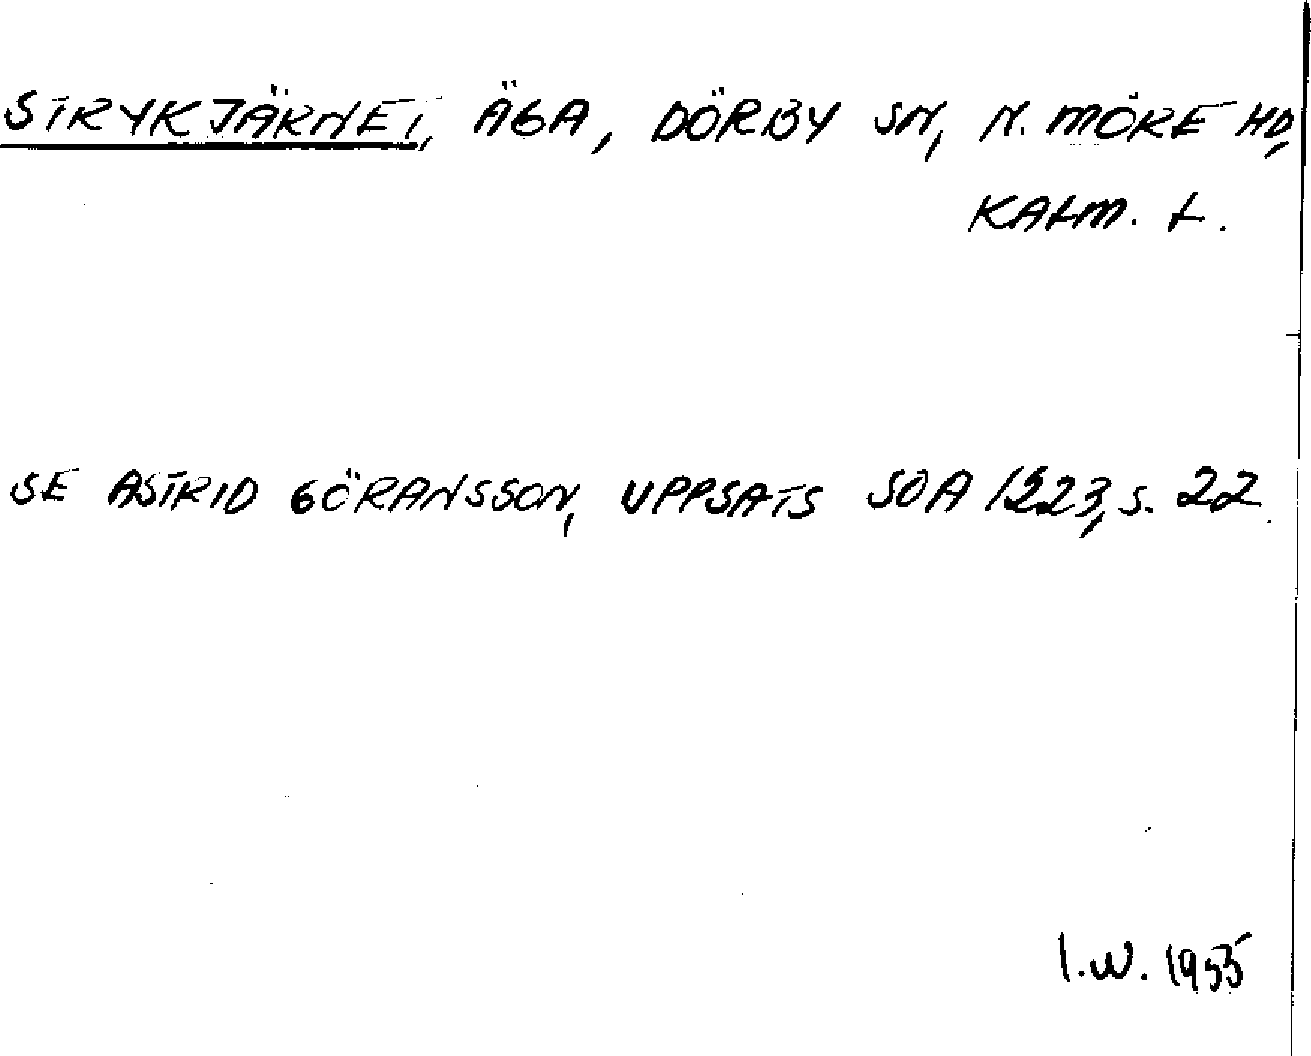 STRYKJÄRNET, ÄGA, DÖRBY SN, N. MÖRE HD,
KALM. L.
SE ASTRID GÖRANSSON, UPPSATS SOA 1223, S. 22.
I.W. 1955